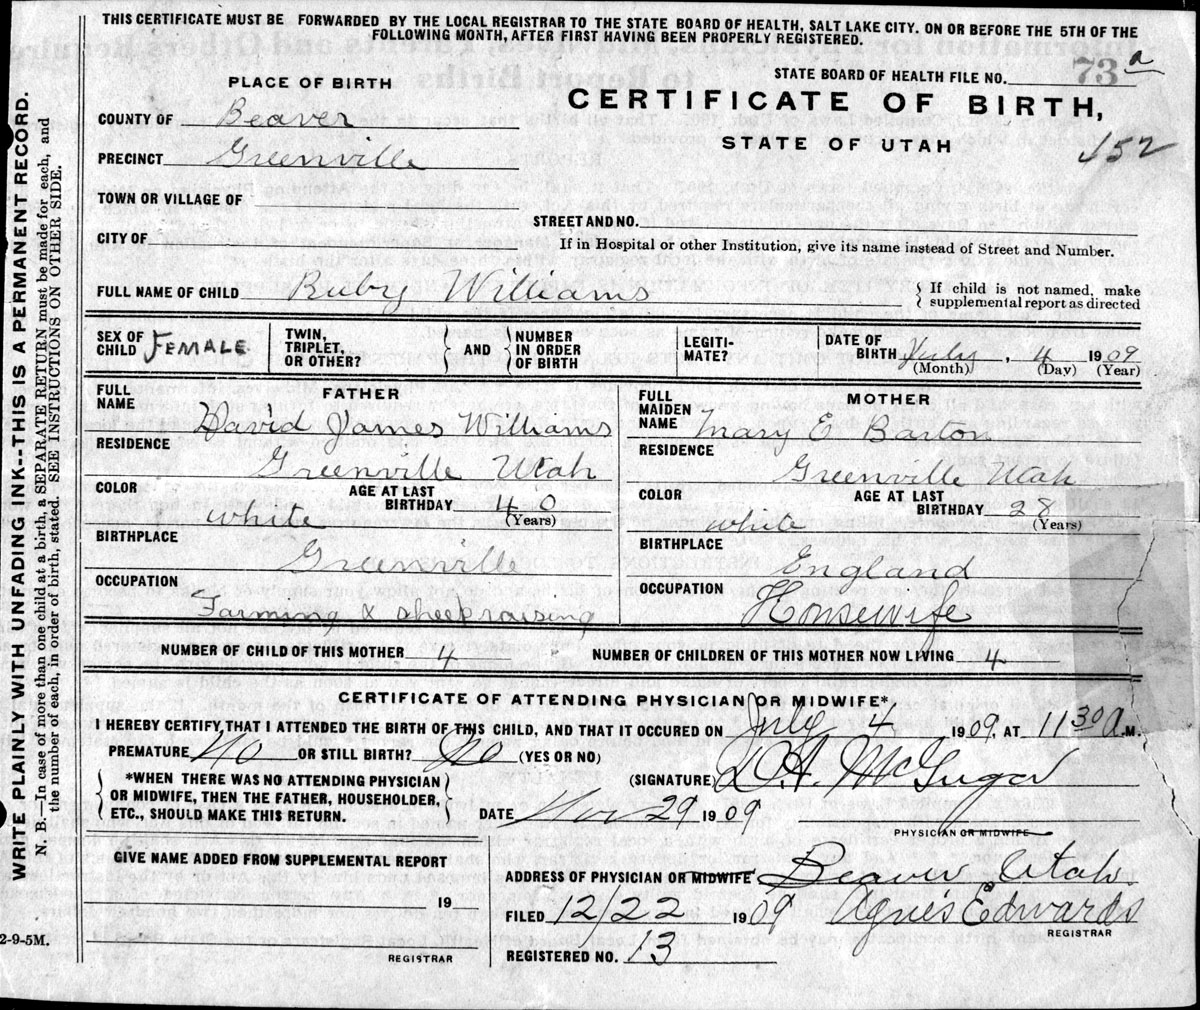 THIS CERTIFICATE MUST BE FORWARDED BY THE LOCAL REGISTRAR TO THE STATE BOARD OF HEALTH, SALT LAKE CITY. ON OR BEFORE THE 5TH OF THE
FOLLOWING MONTH, AFTER FIRST HAVING BEEN PROPERLY REGISTERED.
WRITE PLAINLY WITH UNFADING INK--THIS IS A PERMANENT RECORD.
N. B.—In case of more than one child at a birth, a SEPARATE RETURN must be made for each, and
the number of each, in order of birth, stated. SEE INSTRUCTIONS ON OTHER SIDE.
STATE BOARD OF HEALTH FILE NO. 73 a
PLACE OF BIRTH
CERTIFICATE OF BIRTH,
STATE OF UTAH
452
COUNTY OF Beaver
PRECINCT Greenville
TOWN OR VILLAGE OF
STREET AND NO.
CITY OF
If in Hospital or other Institution, give its name instead of Street and Number.
FULL NAME OF CHILD Ruby Williams
{ If child is not named, make
supplemental report as directed
SEX OF CHILD FEMALE
TWIN, TRIPLET, OR OTHER? } AND { NUMBER IN ORDER OF BIRTH
LEGITI-MATE?
DATE OF BIRTH July, 4 1909
(Month) (Day) (Year)
FULL NAME FATHER
David James Williams
RESIDENCE
Greenville Utah
COLOR AGE AT LAST BIRTHDAY 40
white (Years)
BIRTHPLACE
Greenville
OCCUPATION
Farming & sheepraising
FULL MAIDEN NAME MOTHER
Mary E Barton
RESIDENCE
Greenville Utah
COLOR AGE AT LAST BIRTHDAY 28
white (Years)
BIRTHPLACE
England
OCCUPATION
Housewife
NUMBER OF CHILD OF THIS MOTHER 4 NUMBER OF CHILDREN OF THIS MOTHER NOW LIVING 4
CERTIFICATE OF ATTENDING PHYSICIAN OR MIDWIFE*
I HEREBY CERTIFY THAT I ATTENDED THE BIRTH OF THIS CHILD, AND THAT IT OCCURED ON July 4 1909, AT 11 30 a.M.
PREMATURE No OR STILL BIRTH? No (YES OR NO)
{ *WHEN THERE WAS NO ATTENDING PHYSICIAN
OR MIDWIFE, THEN THE FATHER, HOUSEHOLDER,
ETC., SHOULD MAKE THIS RETURN. }
(SIGNATURE)
DATE Nov 29 1909
PHYSICIAN OR MIDWIFE
GIVE NAME ADDED FROM SUPPLEMENTAL REPORT
19
REGISTRAR
ADDRESS OF PHYSICIAN OR MIDWIFE Beaver Utah
FILED 12/22 1909 Agnes Edwards
REGISTRAR
REGISTERED NO. 13
2-9-5M.